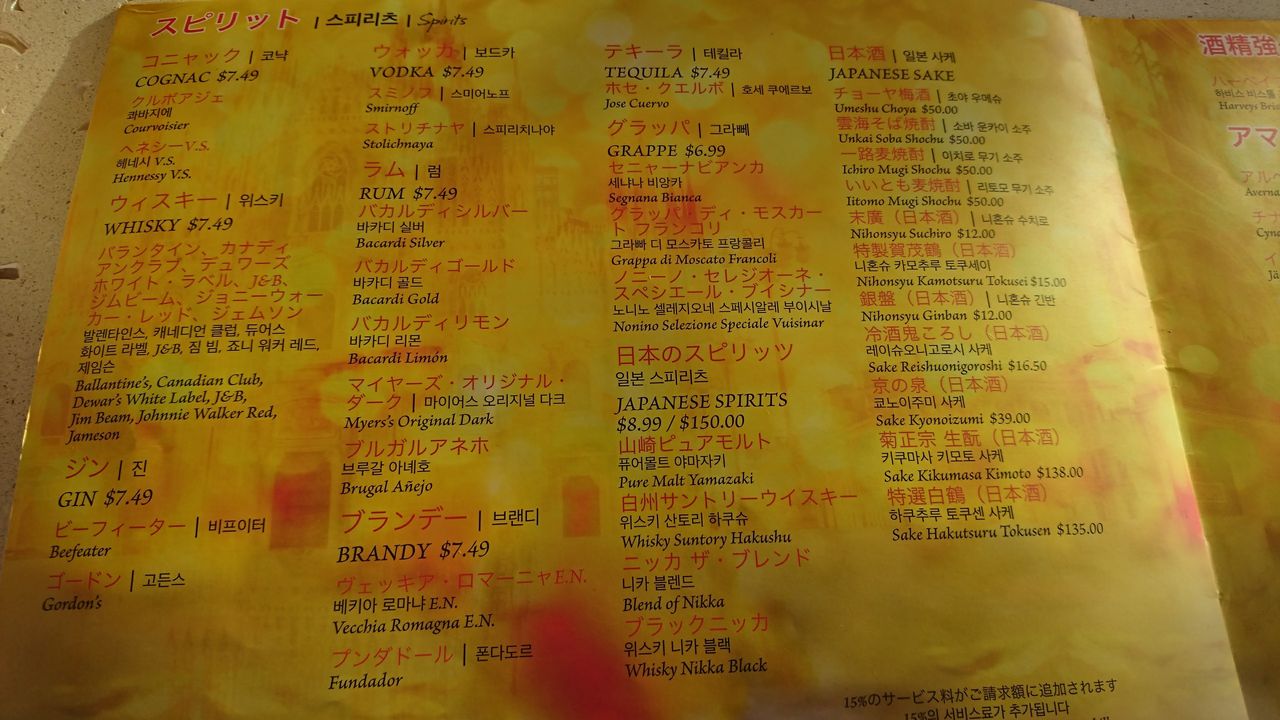 スピリット | 스피리츠 | Spirits
コニャック | 코냑
COGNAC $7.49
クルボアジェ
콰바지에
Courvoisier
ヘネシーV.S.
헤네시 V.S.
Hennessy V.S.
ウィスキー | 위스키
WHISKY $7.49
バランタイン、カナディ
アンクラブ、デュワーズ
ホワイト・ラベル、J&B、
ジムビーム、ジョニーウォー
カー・レッド、ジェムソン
발렌타인스, 캐네디언 클럽, 듀어스
화이트 라벨, J&B, 짐 빔, 죠니 워커 레드,
제임슨
Ballantine's, Canadian Club,
Dewar's White Label, J&B,
Jim Beam, Johnnie Walker Red,
Jameson
ジン | 진
GIN $7.49
ビーフィーター | 비프이터
Beefeater
ゴードン | 고든스
Gordon's
ウォッカ | 보드카
VODKA $7.49
スミノフ | 스미어노프
Smirnoff
ストリチナヤ | 스피리치나야
Stolichnaya
ラム | 럼
RUM $7.49
バカルディシルバー
바카디 실버
Bacardi Silver
バカルディゴールド
바카디 골드
Bacardi Gold
バカルディリモン
바카디 리몬
Bacardi Limón
マイヤーズ・オリジナル・
ダーク | 마이어스 오리지널 다크
Myers's Original Dark
ブルガルアネホ
브루갈 아녜호
Brugal Añejo
ブランデー | 브랜디
BRANDY $7.49
ヴェッキア・ロマーニャE.N.
베키아 로마냐 E.N.
Vecchia Romagna E.N.
プンダドール | 폰다도르
Fundador
テキーラ | 테킬라
TEQUILA $7.49
ホセ・クエルボ | 호세 쿠에르보
Jose Cuervo
グラッパ | 그라빼
GRAPPE $6.99
セニャーナビアンカ
세냐나 비앙카
Segnana Bianca
グラッパ・ディ・モスカー
ト フランゴリ
그라빠 디 모스카토 프랑콜리
Grappa di Moscato Francoli
ノニーノ・セレジオーネ・
スペシエール・ブイシナー
노니노 셀레지오네 스페시알레 부이시날
Nonino Selezione Speciale Vuisinar
日本のスピリッツ
일본 스피리츠
JAPANESE SPIRITS
$8.99 / $150.00
山崎ピュアモルト
퓨어몰트 야마자키
Pure Malt Yamazaki
白州サントリーウイスキー
위스키 산토리 하쿠슈
Whisky Suntory Hakushu
ニッカ ザ・ブレンド
니카 블렌드
Blend of Nikka
ブラックニッカ
위스키 니카 블랙
Whisky Nikka Black
日本酒 | 일본 사케
JAPANESE SAKE
チョーヤ梅酒 | 초야 우메슈
Umeshu Choya $50.00
雲海そば焼酎 | 소바 운카이 소주
Unkai Soba Shochu $50.00
一路麦焼酎 | 이치로 무기 소주
Ichiro Mugi Shochu $50.00
いいとも麦焼酎 | 리토모 무기 소주
Iitomo Mugi Shochu $50.00
末廣（日本酒） | 니혼슈 수치로
Nihonsyu Suchiro $12.00
特製賀茂鶴（日本酒）
니혼슈 카모추루 토쿠세이
Nihonsyu Kamotsuru Tokusei $15.00
銀盤（日本酒） | 니혼슈 긴반
Nihonsyu Ginban $12.00
冷酒鬼ころし（日本酒）
레이슈오니고로시 사케
Sake Reishuonigoroshi $16.50
京の泉（日本酒）
쿄노이주미 사케
Sake Kyonoizumi $39.00
菊正宗 生酛（日本酒）
키쿠마사 키모토 사케
Sake Kikumasa Kimoto $138.00
特選白鶴（日本酒）
하쿠추루 토쿠센 사케
Sake Hakutsuru Tokusen $135.00
15%のサービス料がご請求額に追加されます
15%의 서비스료가 추가됩니다
酒精強
ハーベイ
하비스 비스톨
Harveys Bri
アマ
アルベ
Averna
チナ
Cyna
イ
Jä